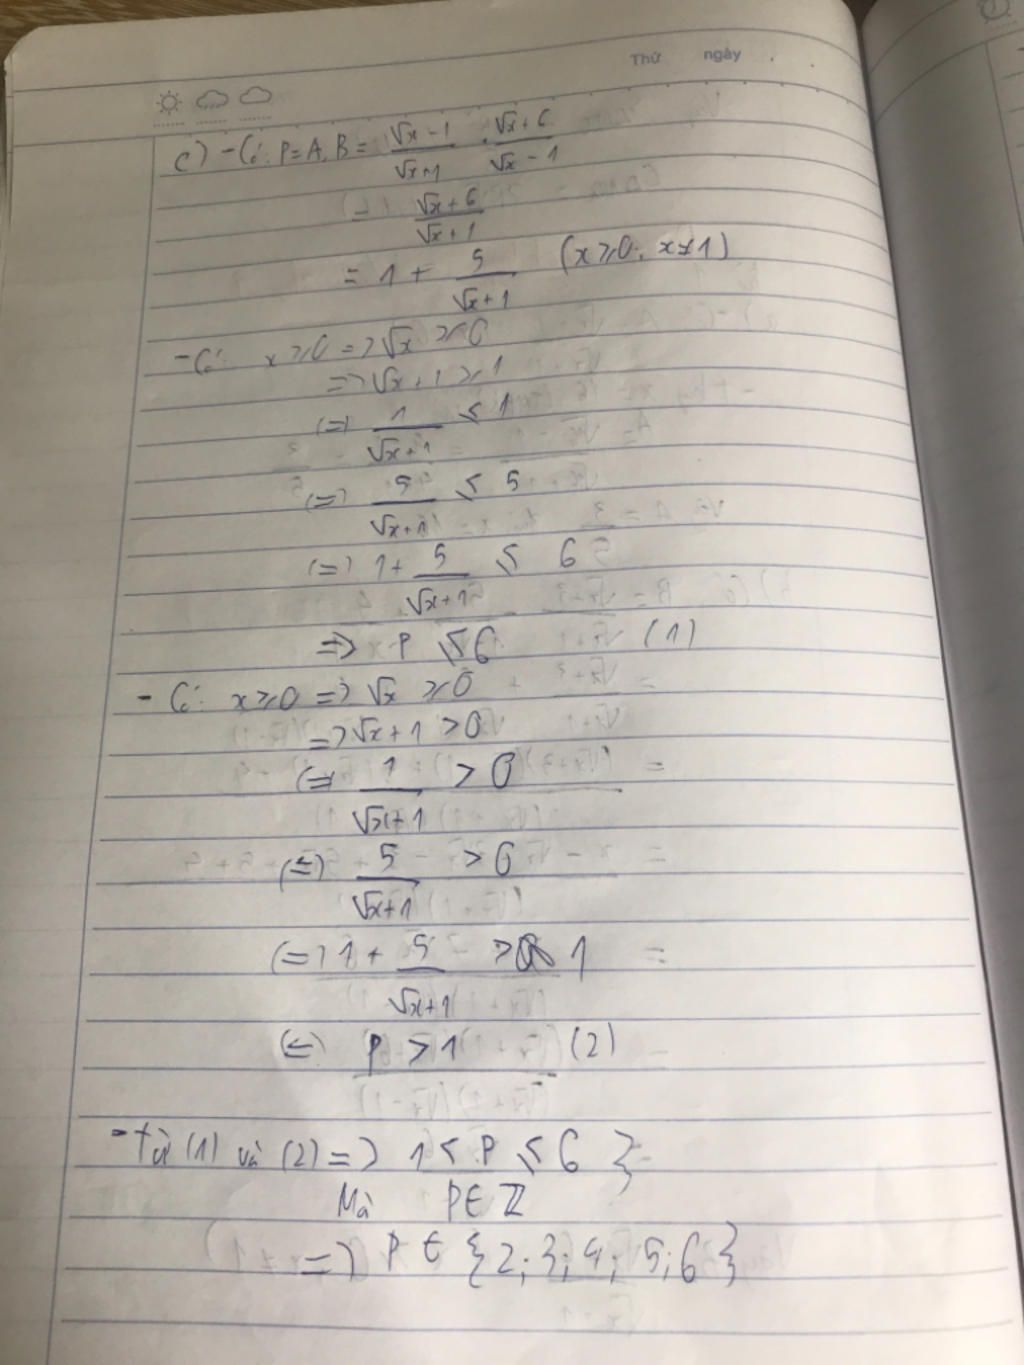 Thứ ngày
c) - Có: P = A.B = (√x - 1)/(√x+1) . (√x + 6)/(√x - 1)
= (√x + 6)/(√x + 1)
= 1 + 5/(√x + 1) (x ⩾ 0; x ≠ 1)
- Có: x ⩾ 0 => √x ⩾ 0
=> √x + 1 ⩾ 1
<=> 1/(√x + 1) ⩽ 1
<=> 5/(√x + 1) ⩽ 5
<=> 1 + 5/(√x + 1) ⩽ 6
=> P ⩽ 6 (1)
- Có: x ⩾ 0 => √x ⩾ 0
=> √x + 1 > 0
<=> 1/(√x + 1) > 0
<=> 5/(√x + 1) > 0
<=> 1 + 5/(√x + 1) > 1
<=> P > 1 (2)
- Từ (1) và (2) => 1 < P ⩽ 6 }
Mà P ∈ Z
=> P ∈ {2; 3; 4; 5; 6}